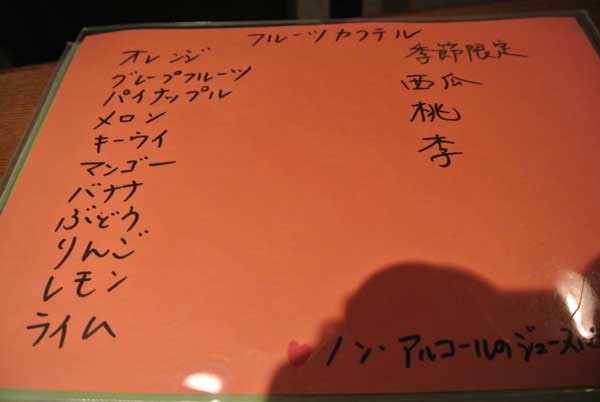 フルーツカクテル
オレンジ
グレープフルーツ
パイナップル
メロン
キーウイ
マンゴー
バナナ
ぶどう
りんご
レモン
ライム
季節限定
西瓜
桃
李
♥ノン・アルコールのジュース